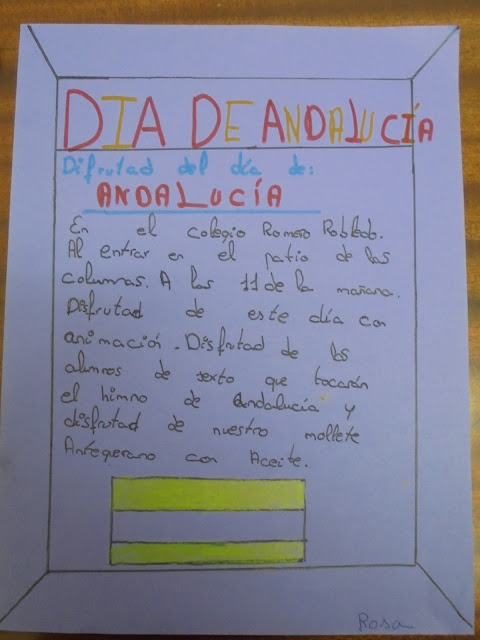 DIA DE ANDALUCÍA
Difrutad del día de:
ANDALUCÍA
En el colegio Romero Robledo.
Al entrar en el patio de las
columnas. A las 11 de la mañana.
Disfrutad de este día con
animación. Disfrutad de los
alumnos de sexto que tocarán
el himno de Andalucía y
disfrutad de nuestro mollete
Antequerano con Aceite.
Rosa